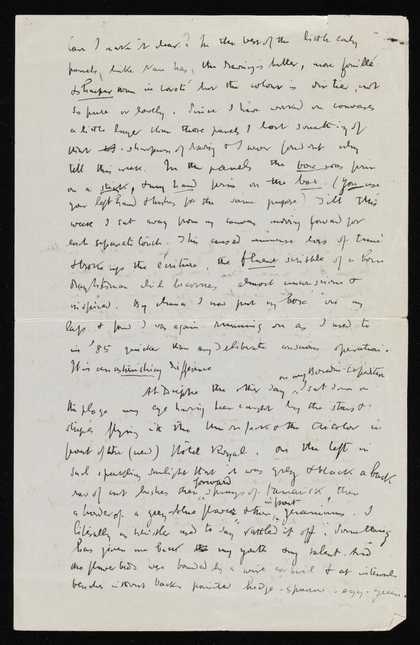 Can I make it clear? In the best of the little early
panels, like Nan has, the drawing is better, more fouillé
& sharper but the colour is dirtier, not
so pure or lovely. Since I have worked on canvases
a little larger than those panels I lost something of
that sharpness of drawing & I never found out why
till this week. In the panels the box was firm
on a , & my hand firm on the box. (You use
your left hand & for the same purpose) Till this
week I sat away from my canvas moving forward for
each separate touch. This caused immense loss of time
& broke up the écriture, the fluent scribble of a born
draughtsman which becomes almost unconscious &
inspired. By chance I now put my box on my
laps & found I was again running on as I used to
in '85 quicker than any deliberate conscious operation.
It is an astonishing difference
At Dieppe the other day on my expedition I sat down on
the plage my eye having been caught by the stars &
stripes flying in the & the tricolor in
front of the (new) Hôtel Royal. On the left in
such sparkling sunlight that it was grey & black a
row of bushes then forward springs of tamarisk, then
a border of a grey-blue flower & then in front geraniums. I
literally as Whistler used to say "rattled it off". Something
has given me back my youth & my talent. And
the flower beds was bounded by a & at intervals
benches without backs painted hedge-sparrow-egg-green.